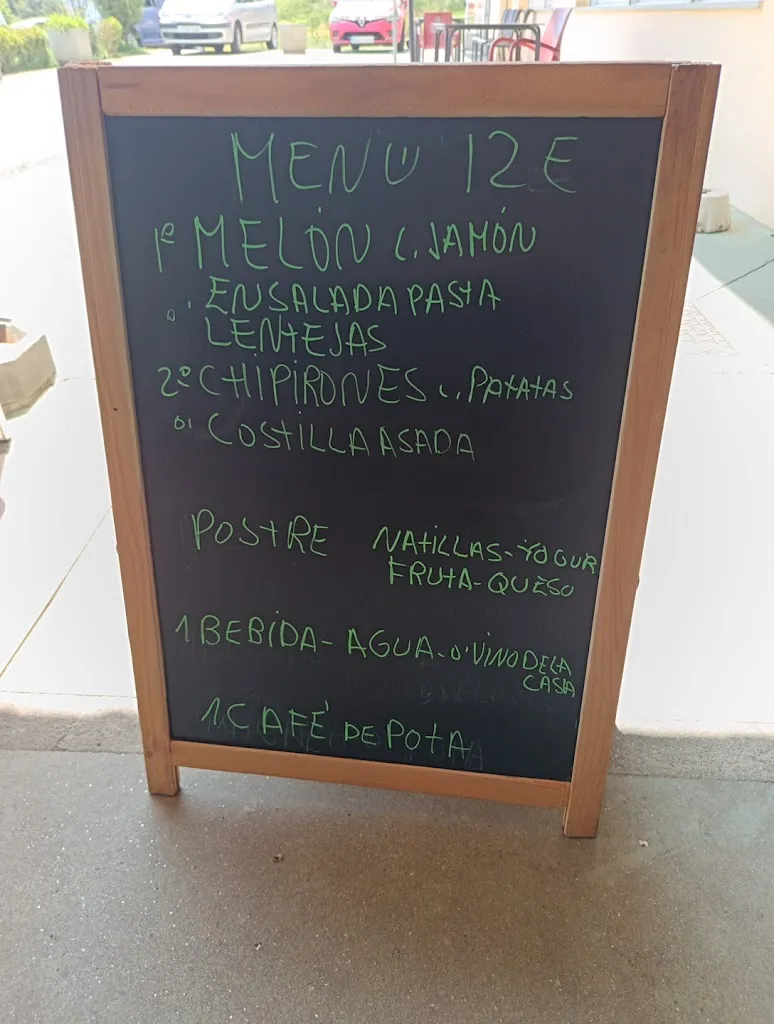 MENU 12 E
1º MELÓN C. JAMÓN
o. ENSALADA PASTA
LENTEJAS
2º CHIPIRONES C. PATATAS
o. COSTILLA ASADA
POSTRE NATILLAS-YOGUR
FRUTA-QUESO
1 BEBIDA- AGUA-o' VINO DE LA
CASA
1 CAFÉ DE POTA